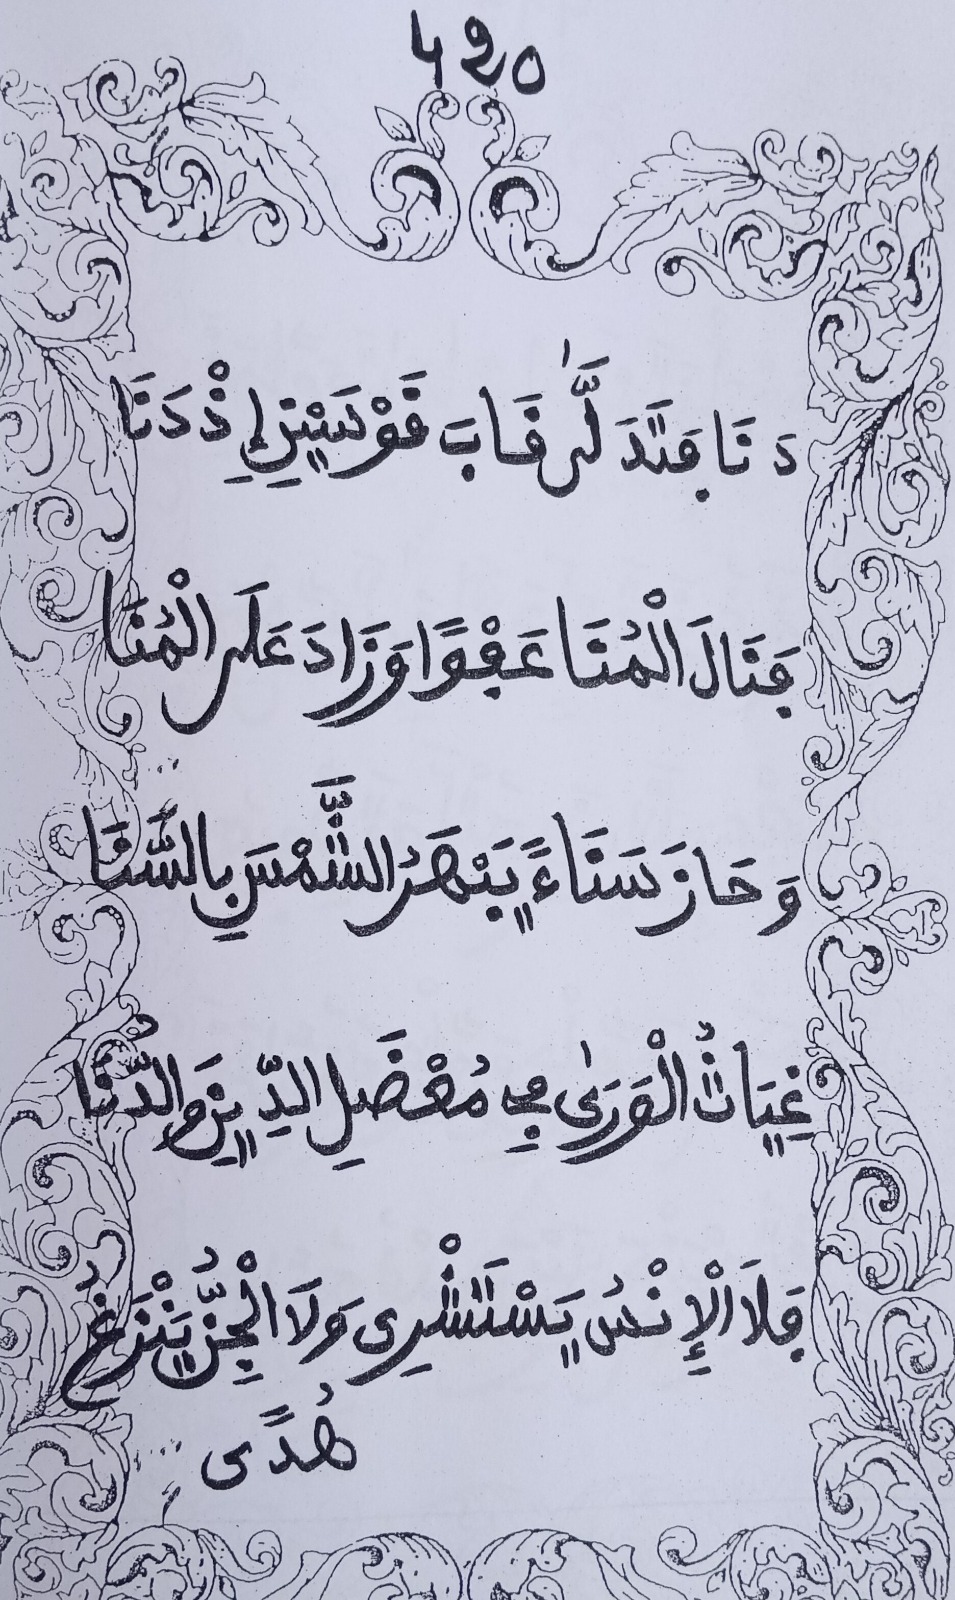 دَنَا فَتَدَلَّى قَابَ قَوْسَيْنِ إِذْ دَنَا
فَنَالَ الْمُنَا عَفْوًا وَزَادَ عَلَى الْمُنَا
وَحَازَ سَنَاءً يَبْهَرُ الشَّمْسَ بِالسَّنَا
غِيَاثُ الْوَرَى فِي مُعْضَلِ الدِّينِ وَالدُّنَا
فَلَا الْإِنْسُ يَسْتَشْرِى وَلَا الْجِنُّ يَنْزَغُ
هُدًى